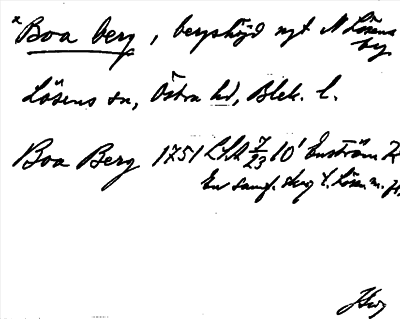 *Boa berg, bergshöjd ngt N Lösens by
Lösens sn, Östra hd, Blek. l.
Boa Berg 1751 LSA 7/23 10' Enström
En samf. skog t. Lösen m. fl.